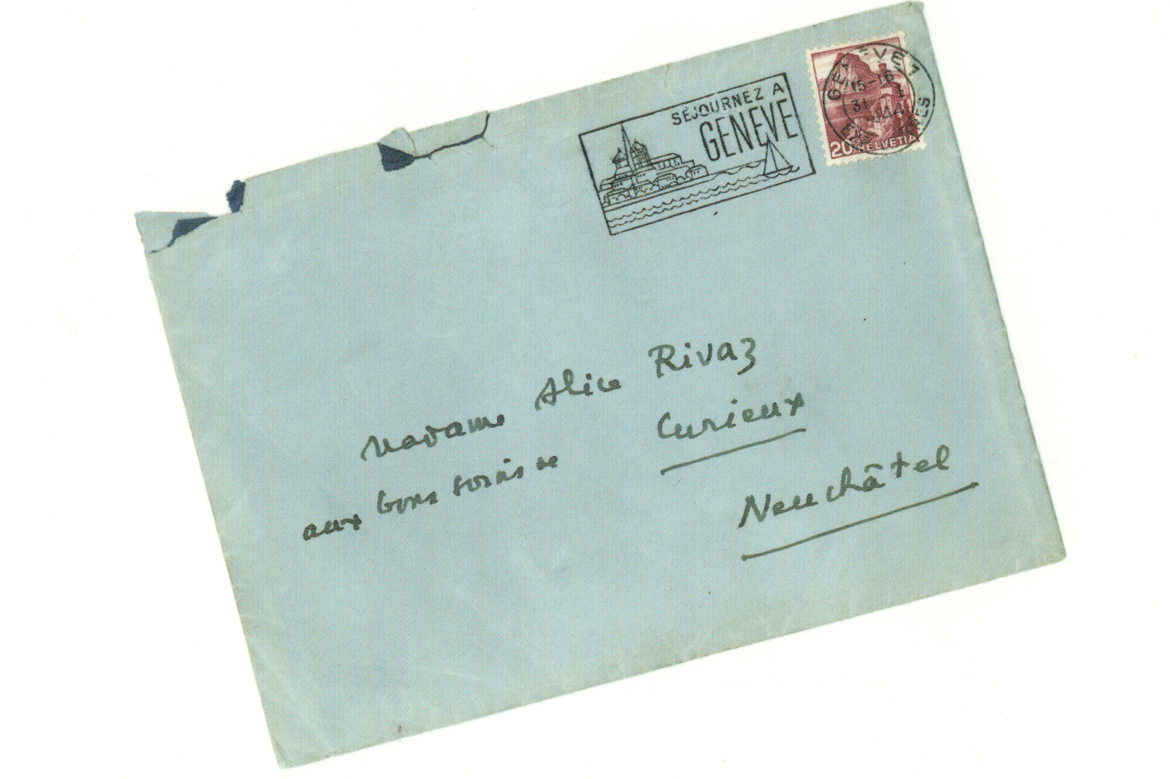 SÉJOURNEZ A
GENÈVE
GENÈVE 1
15-16
31. I.
20 HELVETIA
Madame Alice Rivaz
aux bons soins de Curieux
Neuchâtel